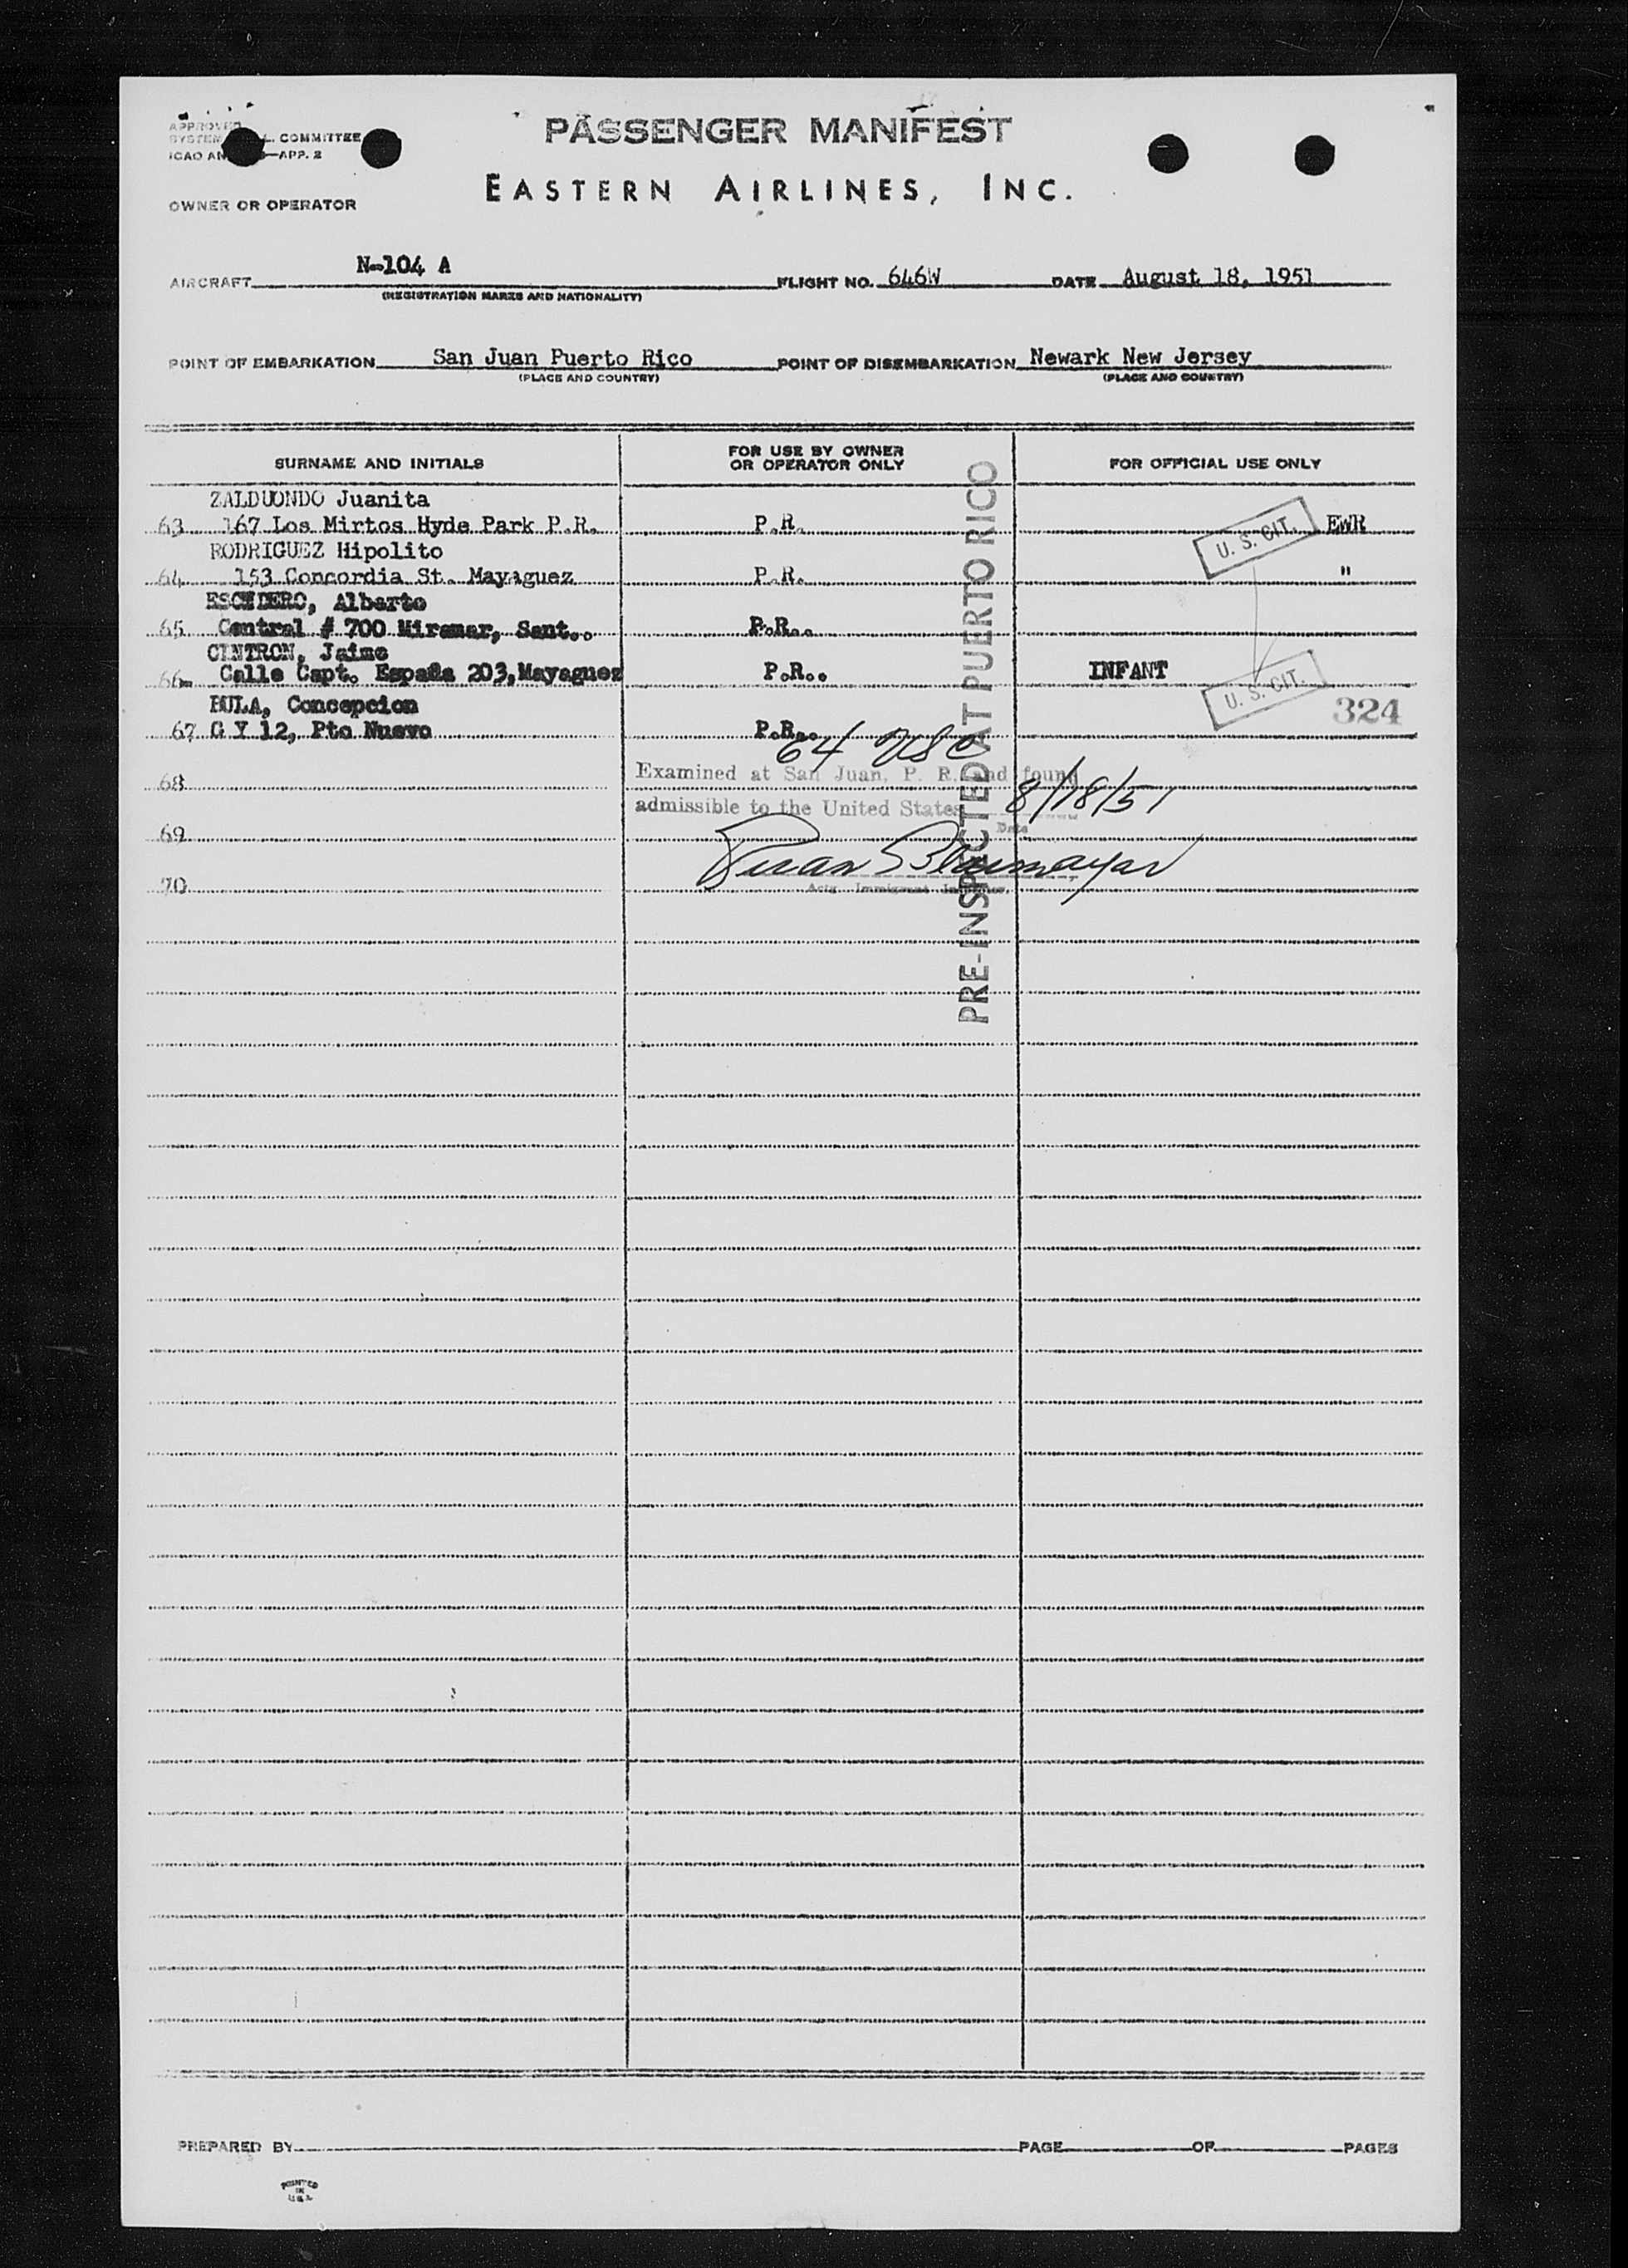 PASSENGER MANIFEST
APPROVED
COMMITTEE
ICAO AN —APP. 2
EASTERN AIRLINES, INC.
OWNER OR OPERATOR
AIRCRAFT N-104 A FLIGHT NO. 646W DATE August 18, 1951
(REGISTRATION MARKS AND NATIONALITY)
POINT OF EMBARKATION San Juan Puerto Rico POINT OF DISEMBARKATION Newark New Jersey
(PLACE AND COUNTRY) (PLACE AND COUNTRY)
SURNAME AND INITIALS FOR USE BY OWNER OR OPERATOR ONLY FOR OFFICIAL USE ONLY
ZALDUONDO Juanita
63 167 Los Mirtos Hyde Park P.R. P.R. U. S. CIT. EWR
RODRIGUEZ Hipolito
64 153 Concordia St. Mayaguez P.R. "
ESCUDERO, Alberto
65 Central # 700 Miramar, Sant.. P.R..
CINTRON, Jaime
66- Calle Capt. España 203, Mayaguez P.R.. INFANT
U. S. CIT.
BULA, Concepcion 324
67 G Y 12, Pto Nuevo P.R..
64 USC
68 Examined at San Juan, P. R. and found
admissible to the United States 8/18/51
Date
69
70
Actg. Immigrant Inspector
PRE-INSPECTED AT PUERTO RICO
PREPARED BY PAGE OF PAGES
PRINTED
IN
U.S.A.